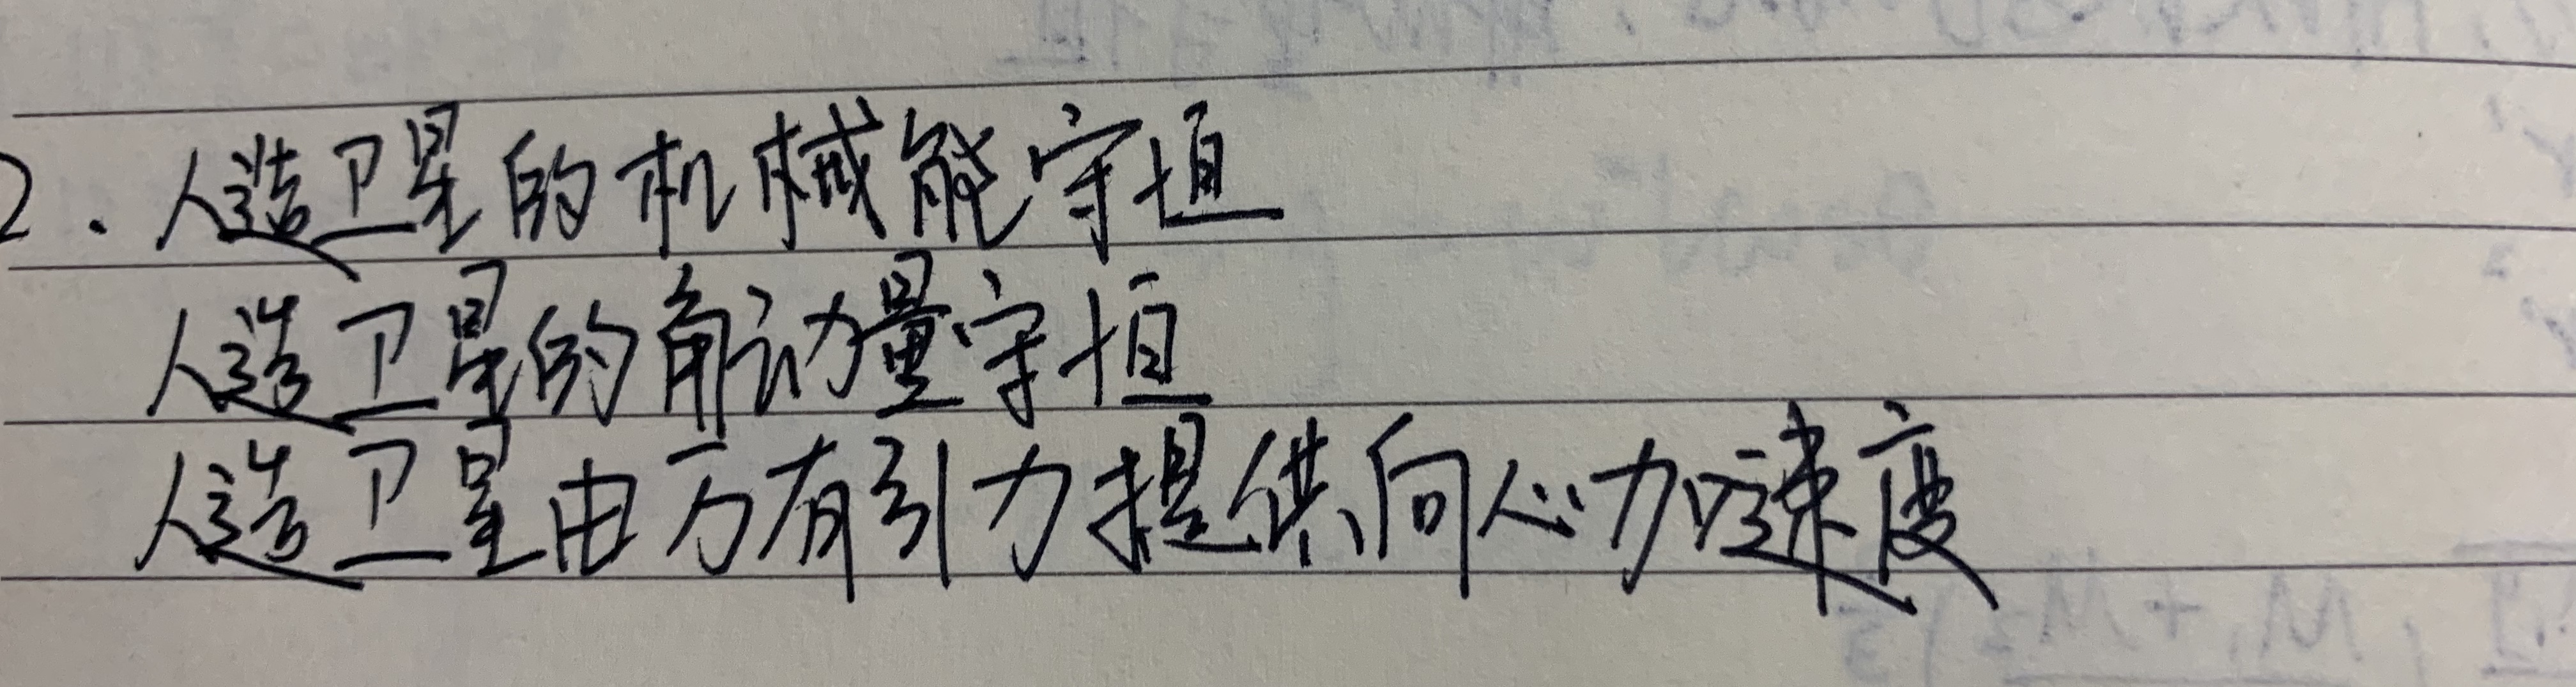 2. 人造卫星的机械能守恒
人造卫星的角动量守恒
人造卫星由万有引力提供向心加速度